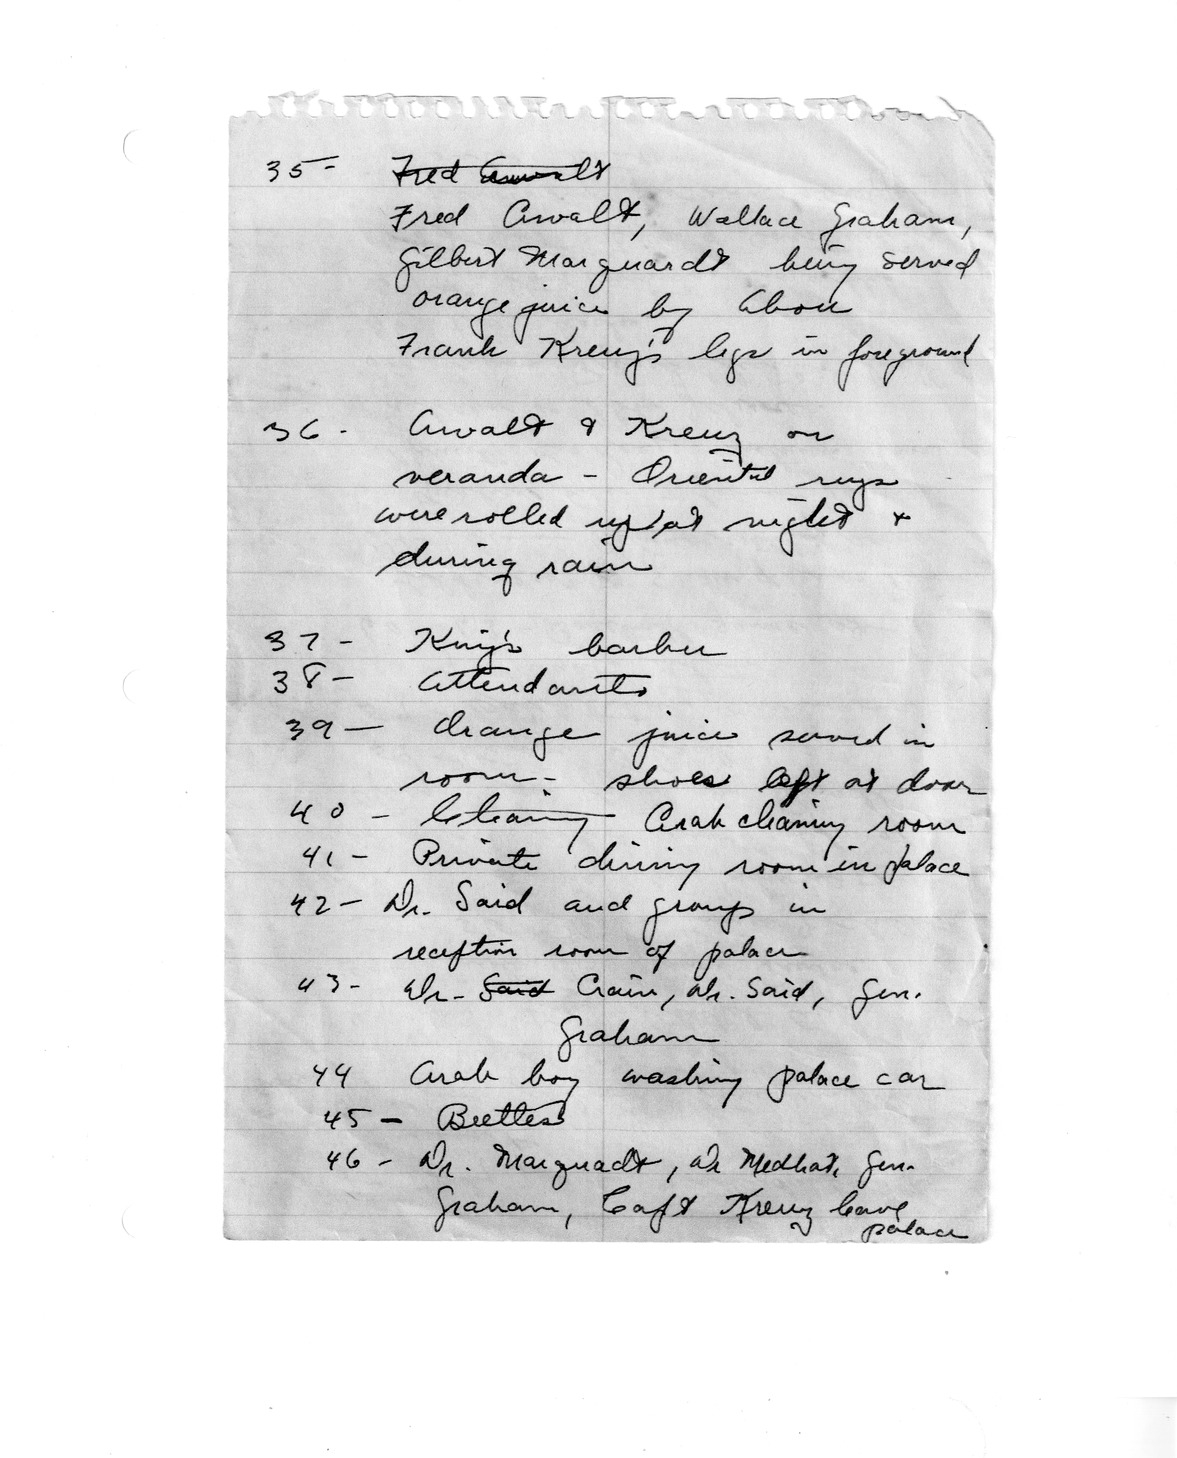 35- Fred Awalt
Fred Awalt, Wallace Graham,
Gilbert Marquardt being served
orange juice by Abou
Frank Kreuz's legs in foreground
36- Awalt & Kreuz on
veranda - Oriental rugs
were rolled up at night &
during rain
37- King's barber
38- Attendants
39- Orange juice served in
room - shoes left at door
40- Cleaning Arab cleaning room
41- Private dining room in palace
42- Dr. Said and group in
reception room of palace
43- Dr. Said Crain, Dr. Said, Gen.
Graham
44 Arab boy washing palace car
45-
46- Dr. Marquadt, Dr Medhat, Gen.
Graham, Capt Kreuz leave
palace